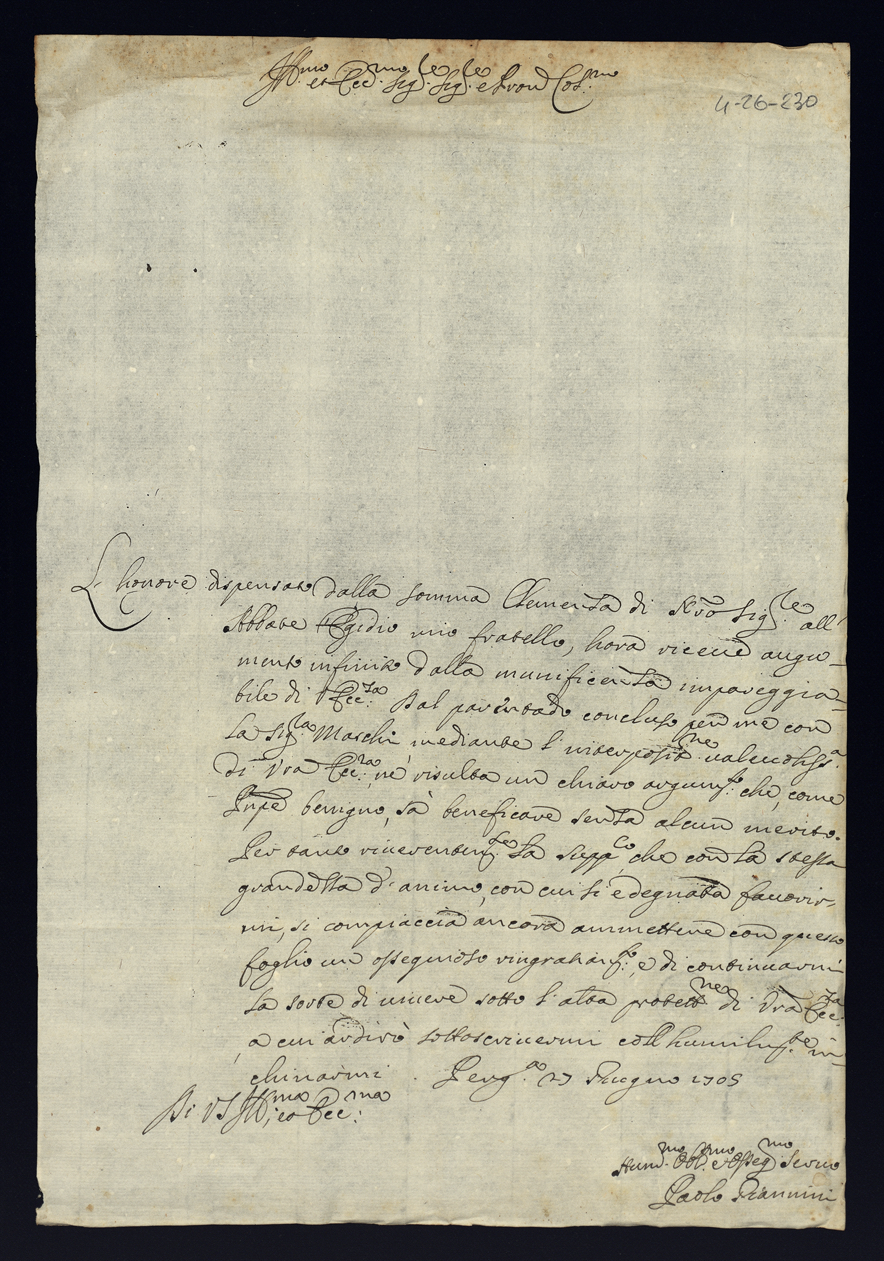 Ill.mo et Ecc.mo Sig.re Sig.re e Pron Col.mo
4-26-230
L'honore dispensato dalla somma Clemenza di Nro Sig.re all'
Abbate Egidio mio fratello, hora riceve augu-
mento infinito dalla munificenza impareggia-
bile di Ecc.za Dal parentado concluso per me con
la Sig.ra Marchi mediante l'interposit.ne valevoliss.a
di Vra Ecc.za, ne risulta un chiaro argum.to che, come
Inpe benigno, sà beneficare senza alcun merito.
Per tanto riverentem.te la supp.co che con la stessa
grandezza d'animo, con cui si è degnata favorir-
mi, si compiaccia ancora ammettere con questo
foglio un ossequioso ringratiam.to, e di continuarmi
la sorte di vivere sotto l'alta protett.ne di Vra Ecc.za
a cui ardirò sottoscrivermi coll humiliss.te in-
chinarmi. Perg.a 27 Giugno 1705
Di VS Ill.ma et Ecc.ma
Hum.mo Obl.mo et Osseq.mo Servo
Paolo Giannini